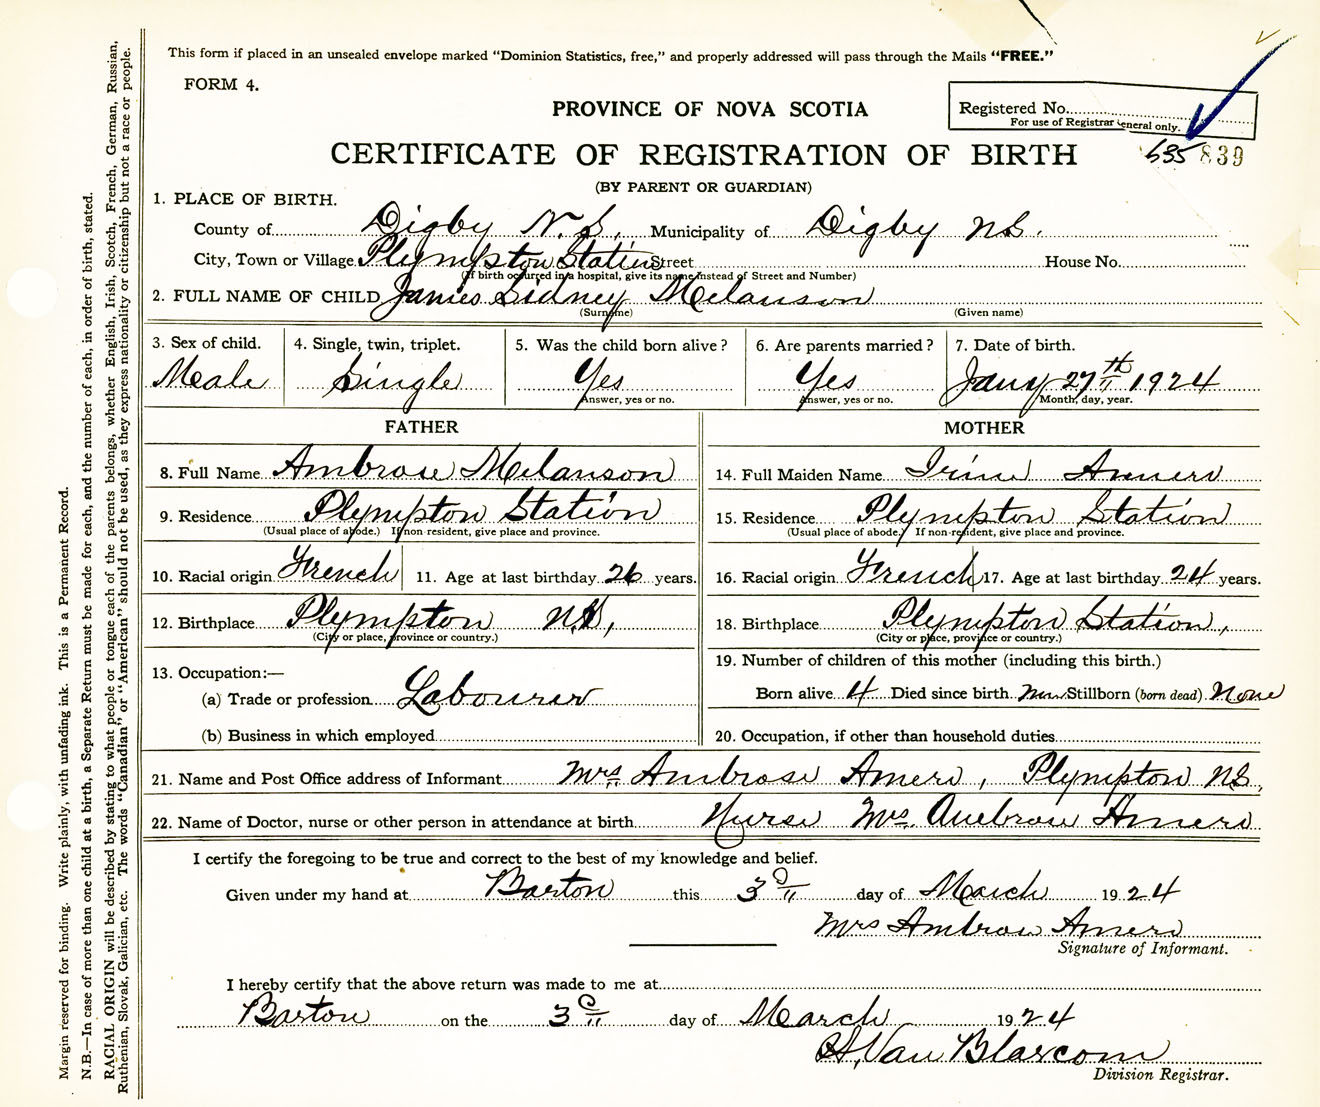 This form if placed in an unsealed envelope marked "Dominion Statistics, free," and properly addressed will pass through the Mails "FREE."
FORM 4.
PROVINCE OF NOVA SCOTIA
Registered No.
For use of Registrar General only.
CERTIFICATE OF REGISTRATION OF BIRTH
635 839
(BY PARENT OR GUARDIAN)
1. PLACE OF BIRTH.
County of Digby N.S. Municipality of Digby N.S.
City, Town or Village Plympton Station Street House No.
(If birth occurred in a hospital, give its name instead of Street and Number)
2. FULL NAME OF CHILD James Sidney Melanson
(Surname) (Given name)
3. Sex of child. 4. Single, twin, triplet. 5. Was the child born alive? 6. Are parents married? 7. Date of birth.
Male Single Yes Yes Jany 27th 1924
Answer, yes or no. Answer, yes or no. Month, day, year.
FATHER MOTHER
8. Full Name Ambrose Melanson 14. Full Maiden Name Irine Amero
9. Residence Plympton Station 15. Residence Plympton Station
(Usual place of abode.) If non-resident, give place and province. (Usual place of abode.) If non-resident, give place and province.
10. Racial origin French 11. Age at last birthday 26 years. 16. Racial origin French 17. Age at last birthday 24 years.
12. Birthplace Plympton N.S, 18. Birthplace Plympton Station,
(City or place, province or country.) (City or place, province or country.)
13. Occupation:— 19. Number of children of this mother (including this birth.)
(a) Trade or profession Labourer Born alive 4 Died since birth Stillborn (born dead) None
(b) Business in which employed 20. Occupation, if other than household duties
21. Name and Post Office address of Informant Mrs Ambrose Amero, Plympton N.S.
22. Name of Doctor, nurse or other person in attendance at birth Nurse Mrs. Ambrose Amero
I certify the foregoing to be true and correct to the best of my knowledge and belief.
Given under my hand at Barton this 3d day of March 1924
Mrs Ambrose Amero
Signature of Informant.
I hereby certify that the above return was made to me at
Barton on the 3d day of March 1924
H. Van Blarcom
Division Registrar.
Margin reserved for binding. Write plainly, with unfading ink. This is a Permanent Record.
N.B.—In case of more than one child at a birth, a Separate Return must be made for each, and the number of each, in order of birth, stated.
RACIAL ORIGIN will be described by stating to what people or tongue each of the parents belongs, whether English, Irish, Scotch, French, German, Russian,
Ruthenian, Slovak, Galician, etc. The words "Canadian" or "American" should not be used, as they express nationality or citizenship but not a race or people.